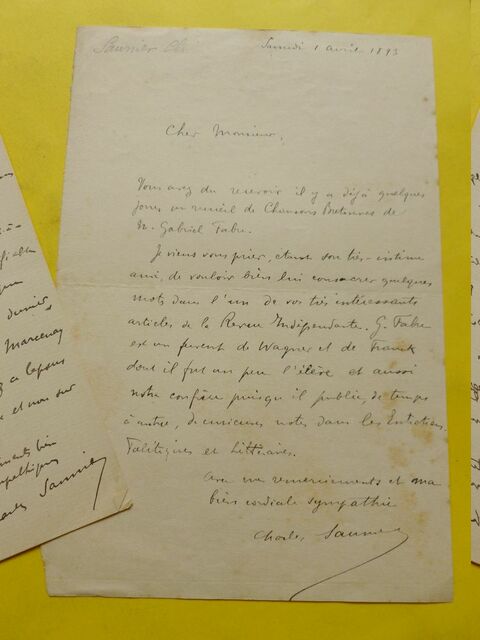 Saunier Ch
Samedi 1 avril 1893
Cher Monsieur,
Vous avez du recevoir il y a déjà quelques
jours un recueil de Chansons Bretonnes de
M. Gabriel Fabre.
Je viens vous prier, étant son très-intime
ami, de vouloir bien lui consacrer quelques
mots dans l'un de vos très intéressants
articles de la Revue Indépendante. G. Fabre
est un fervent de Wagner et de Franck
dont il fut un peu l'élève et aussi
notre confrère puisqu'il publie, de temps
à autre, de curieuses notes dans les Entretiens
Politiques et Littéraires.
Avec mes remerciements et ma
bien cordiale sympathie
Charles Saunier
dernier
Marcenay
et nous sur
bien
Saunier